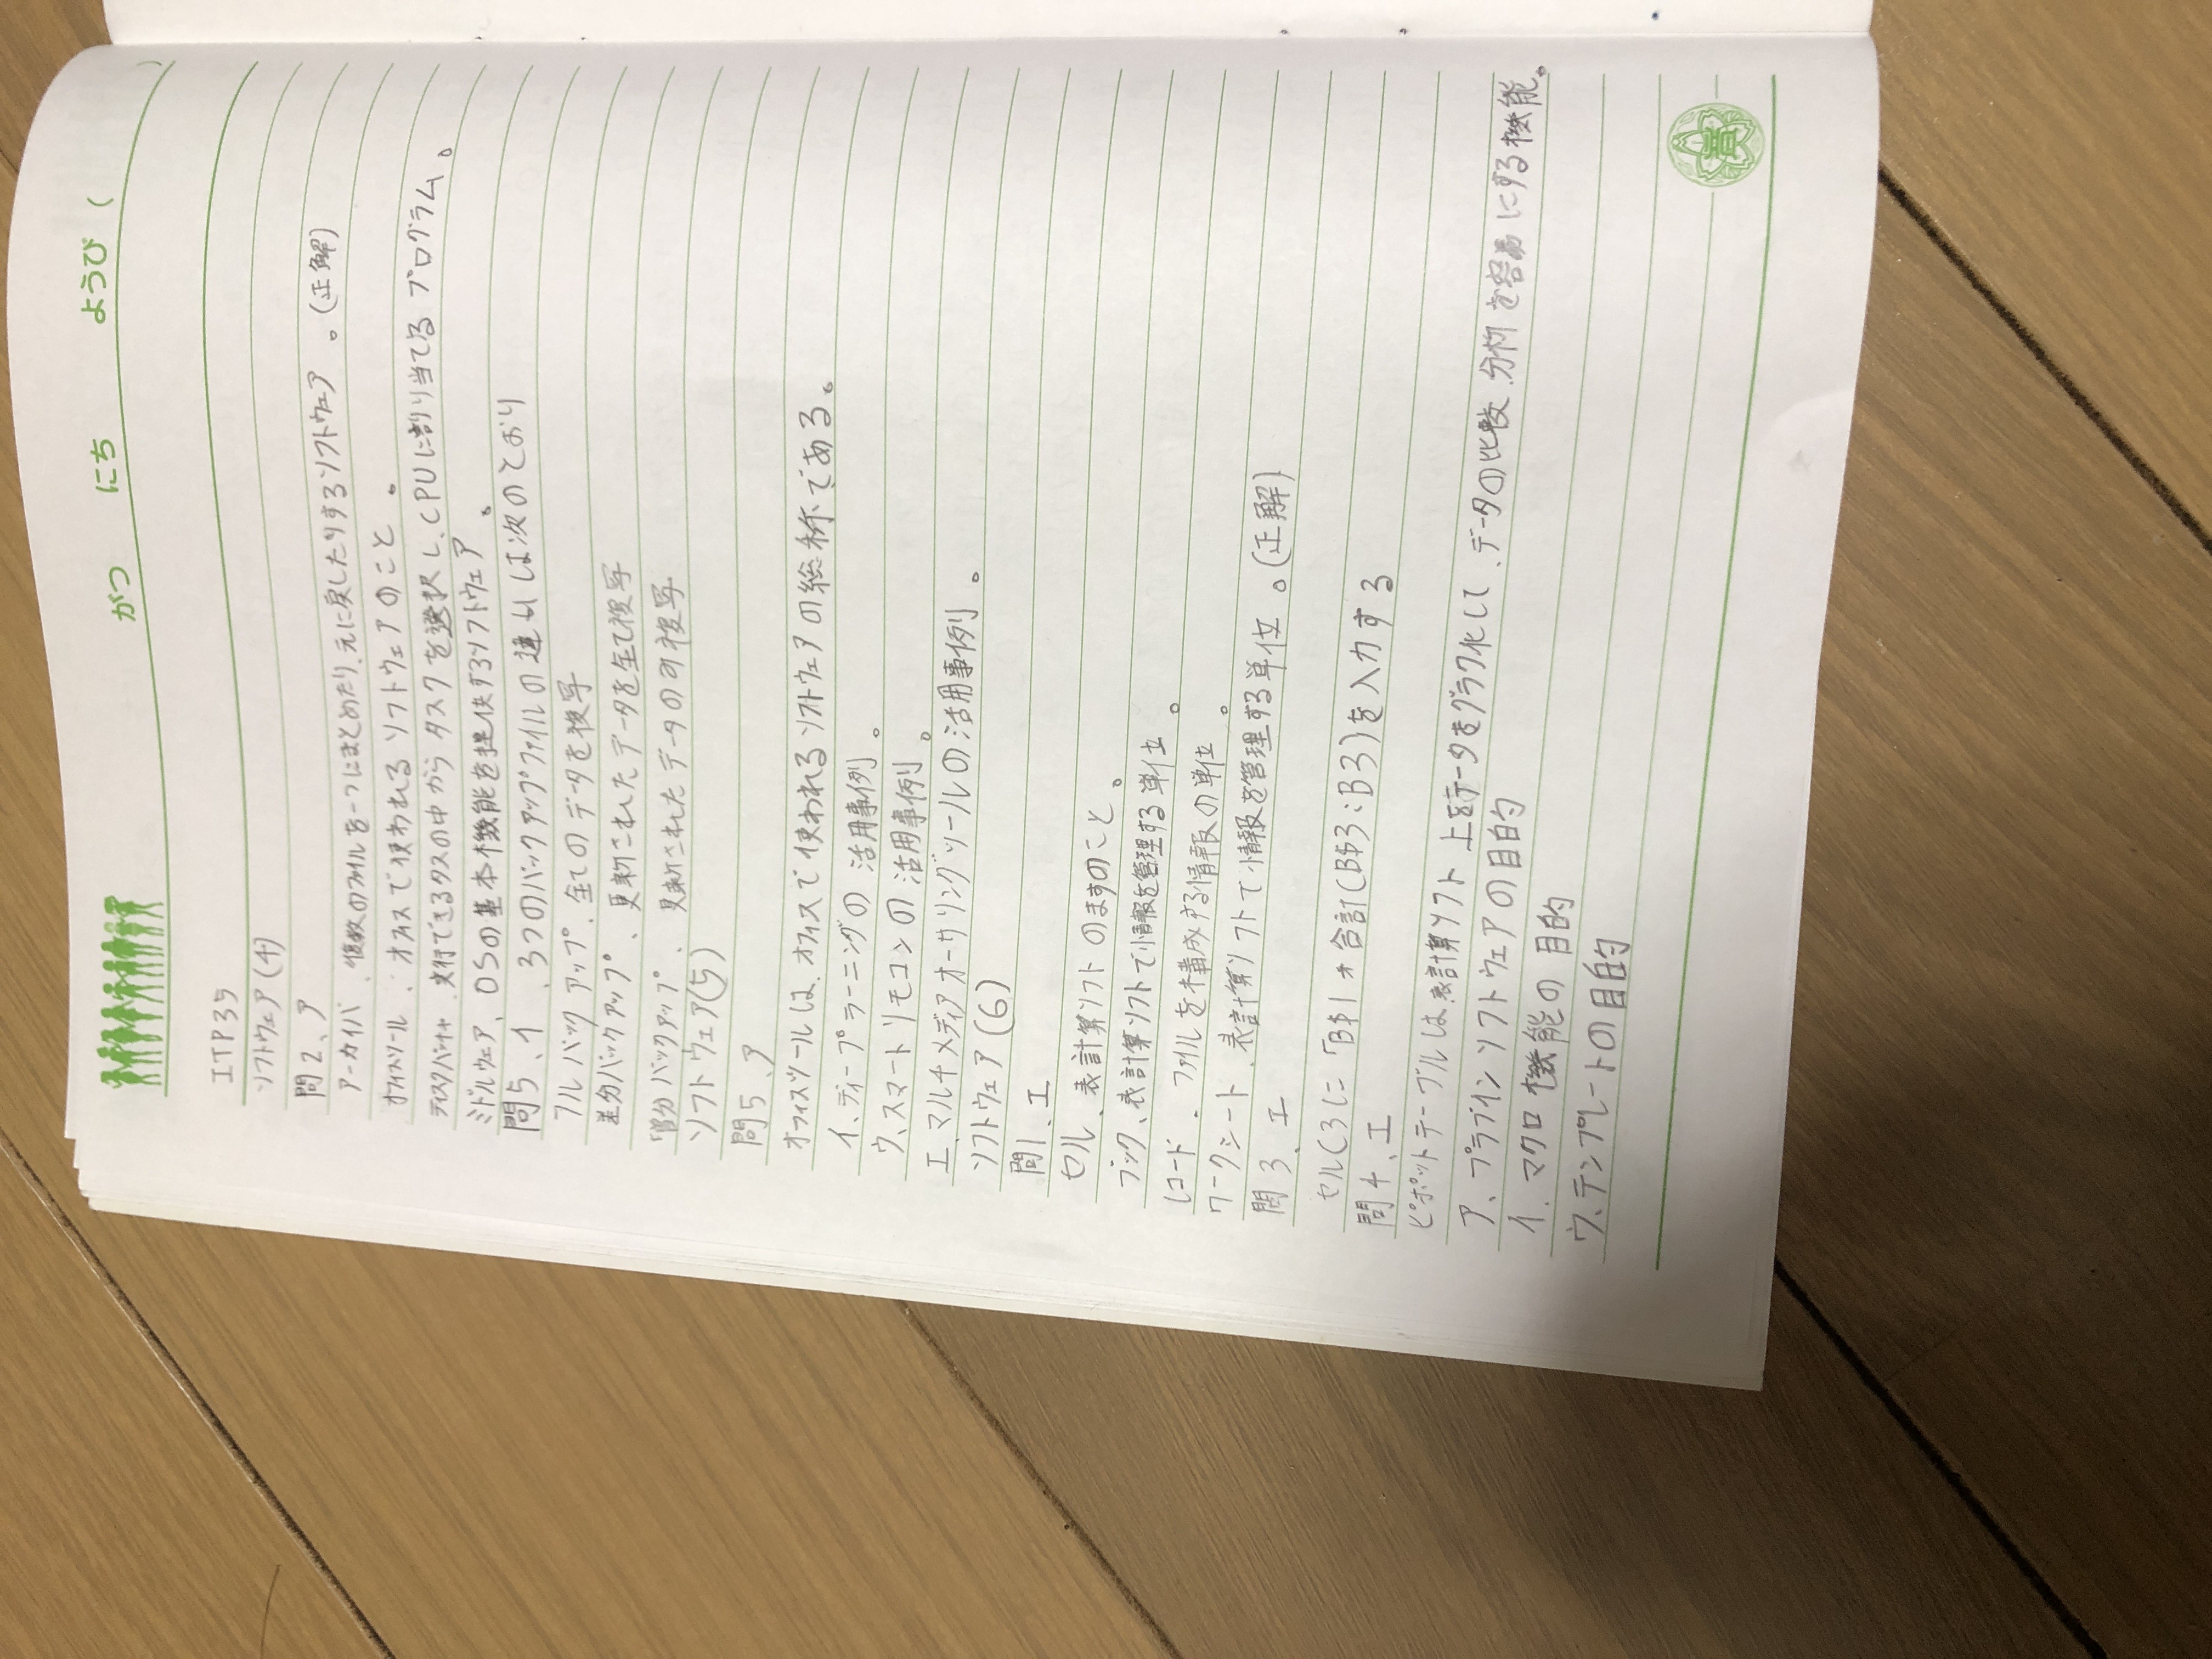 がつ にち ようび ( )
ITP35
ソフトウェア(4)
問2、ア
アーカイバ、複数のファイルを一つにまとめたり、元に戻したりするソフトウェア。(正解)
オフィスツール、オフィスで使われるソフトウェアのこと。
ディスクパッチャ、実行できるタスの中からタスクを選択し、CPUに割り当てるプログラム。
ミドルウェア、OSの基本機能を提供するソフトウェア。
問5、イ、3つのバックアップファイルの違いは次のとおり
フルバックアップ、全てのデータを複写
差分バックアップ、更新されたデータを全て複写
増分バックアップ、更新されたデータのみ複写
ソフトウェア(5)
問5、ア
オフィスツールは、オフィスで使われるソフトウェアの総称である。
イ、ディープラーニングの活用事例。
ウ、スマートリモコンの活用事例。
エ、マルチメディアオーサリングツールの活用事例。
ソフトウェア(6)
問1、エ
セル、表計算ソフトのますのこと。
ブック、表計算ソフトで情報を管理する単位。
レコード、ファイルを構成する情報の単位。
ワークシート、表計算ソフトで情報を管理する単位。(正解)
問3、エ
セルC3に「B$1*合計(B$3:B3)を入力する
問4、エ
ピポットテーブルは、表計算ソフト上をデータをグラフ化して、データの比較、分析を容易にする機能。
ア、プラブインソフトウェアの目的
イ、マクロ機能の目的
ウ、テンプレートの目的